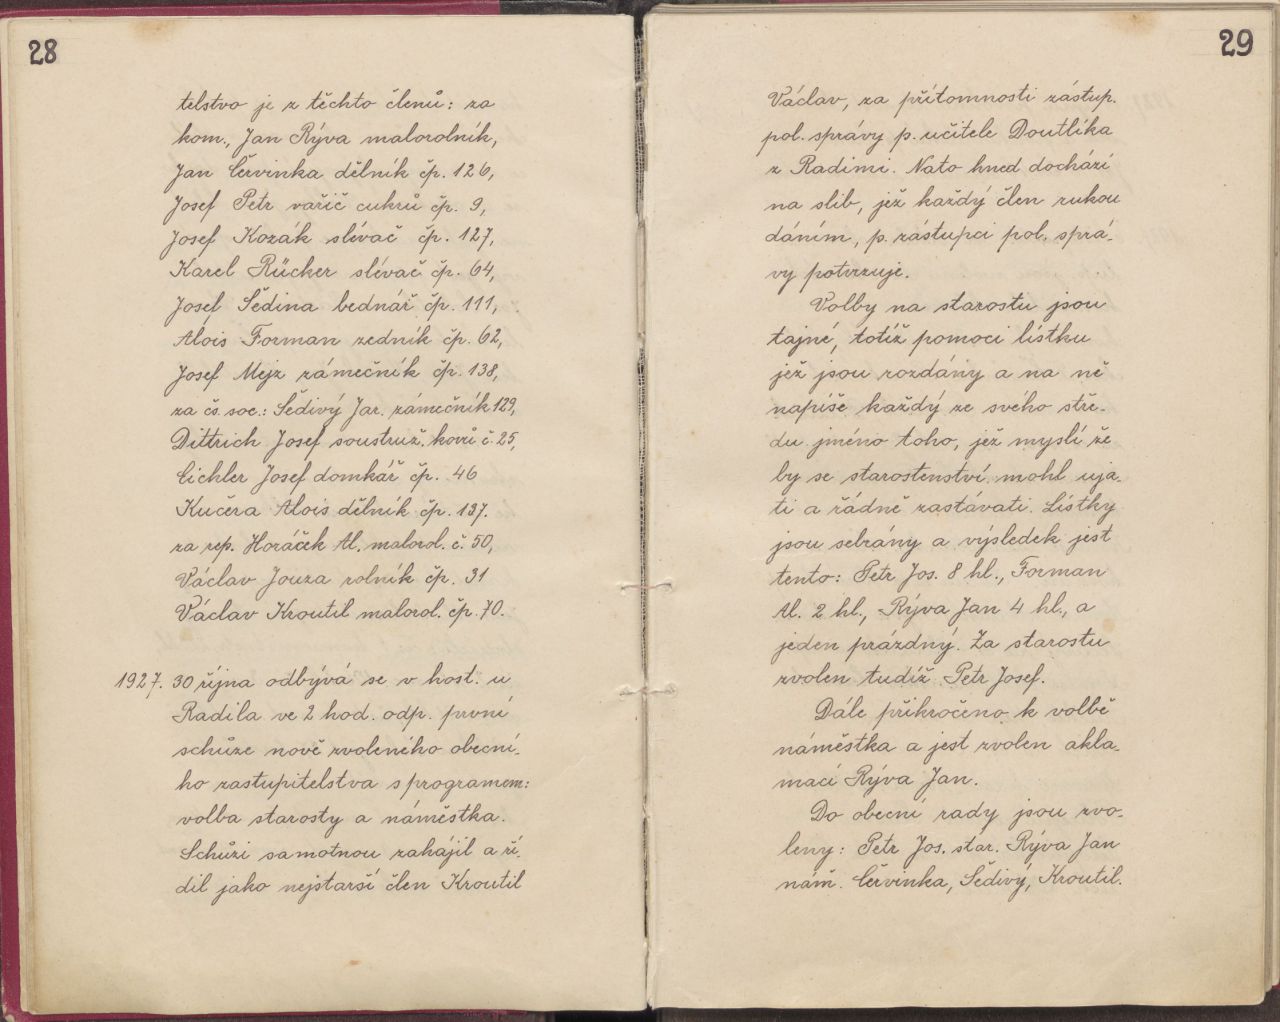 28
telstvo je z těchto členů: za
kom., Jan Rýva malorolník,
Jan Červinka dělník čp. 126,
Josef Petr vařič cukrů čp. 9,
Josef Kozák slévač čp. 127,
Karel Rücker slévač čp. 64,
Josef Šedina bednář čp. 111,
Alois Forman zedník čp. 62,
Josef Mejz zámečník čp. 138,
za čs. soc.: Šedivý Jar. zámečník 129,
Dittrich Josef soustruž. kovů č. 25,
Eichler Josef domkář čp. 46
Kučera Alois dělník čp. 137.
za rep. Horáček Al. malorol. č. 50,
Václav Jouza rolník čp. 31
Václav Kroutil malorol. čp. 70.
1927. 30 října odbývá se v host. u
Radila ve 2 hod. odp. první
schůze nově zvoleného obecní-
ho zastupitelstva s programem:
volba starosty a náměstka.
Schůzi samotnou zahájil a ří-
dil jako nejstarší člen Kroutil
29
Václav, za přítomnosti zástup.
pol. správy p. učitele Doutlíka
z Radimi. Nato hned dochází
na slib, jež každý člen rukou
dáním, p. zástupci pol. sprá-
vy potvrzuje.
Volby na starostu jsou
tajné, totiž pomoci lístku
jež jsou rozdány a na ně
napíše každý ze svého stře-
du jméno toho, jež myslí že
by se starostenství mohl uja-
ti a řádně zastávati. Lístky
jsou sebrány a výsledek jest
tento: Petr Jos. 8 hl., Forman
Al. 2 hl., Rýva Jan 4 hl., a
jeden prázdný. Za starostu
zvolen tudíž Petr Josef.
Dále přikročeno k volbě
náměstka a jest zvolen akla-
mací Rýva Jan.
Do obecní rady jsou zvo-
leny: Petr Jos. star. Rýva Jan
nám. Červinka, Šedivý, Kroutil.